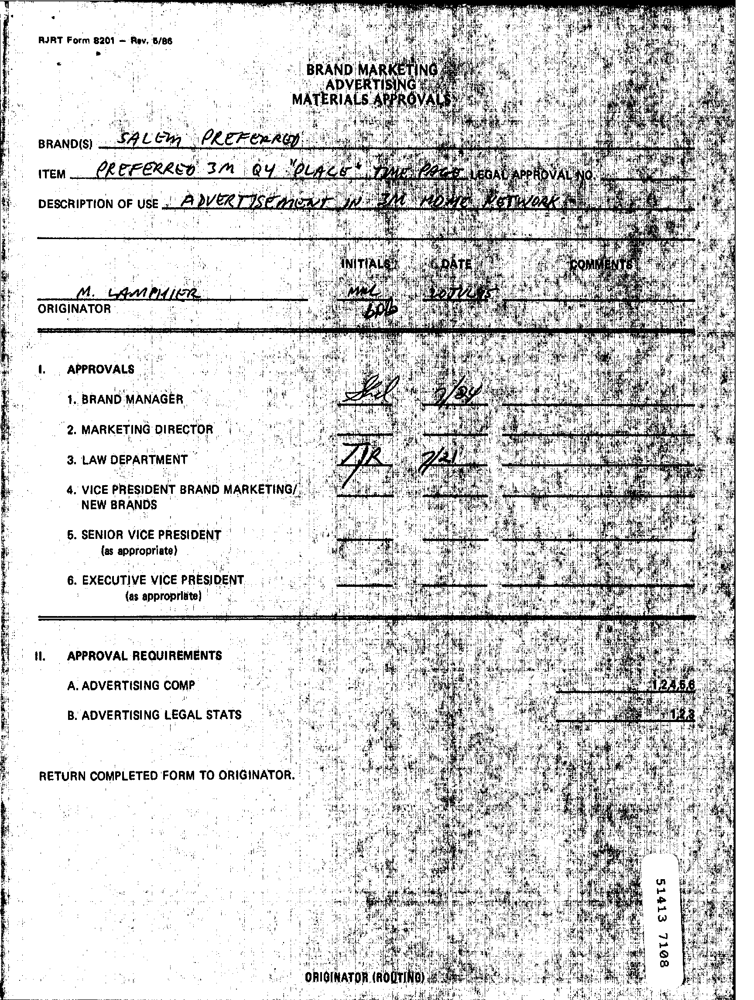 RJRT Form 8201 — Rev. 5/86
BRAND MARKETING
ADVERTISING
MATERIALS APPROVALS
BRAND(S) SALEM PREFERRED
ITEM PREFERRED 3M Q4 "PLACE" TIME PAGE LEGAL APPROVAL NO.
DESCRIPTION OF USE ADVERTISEMENT IN 3M HOME NETWORK
INITIALS DATE COMMENTS
M. LAMPHIER MML
ORIGINATOR
I. APPROVALS
1. BRAND MANAGER 7/24
2. MARKETING DIRECTOR
3. LAW DEPARTMENT TJR 7/21
4. VICE PRESIDENT BRAND MARKETING/
NEW BRANDS
5. SENIOR VICE PRESIDENT
(as appropriate)
6. EXECUTIVE VICE PRESIDENT
(as appropriate)
II. APPROVAL REQUIREMENTS
A. ADVERTISING COMP 1,2,4,5,6
B. ADVERTISING LEGAL STATS 1,2,3
RETURN COMPLETED FORM TO ORIGINATOR.
51413 7108
ORIGINATOR (ROUTING)